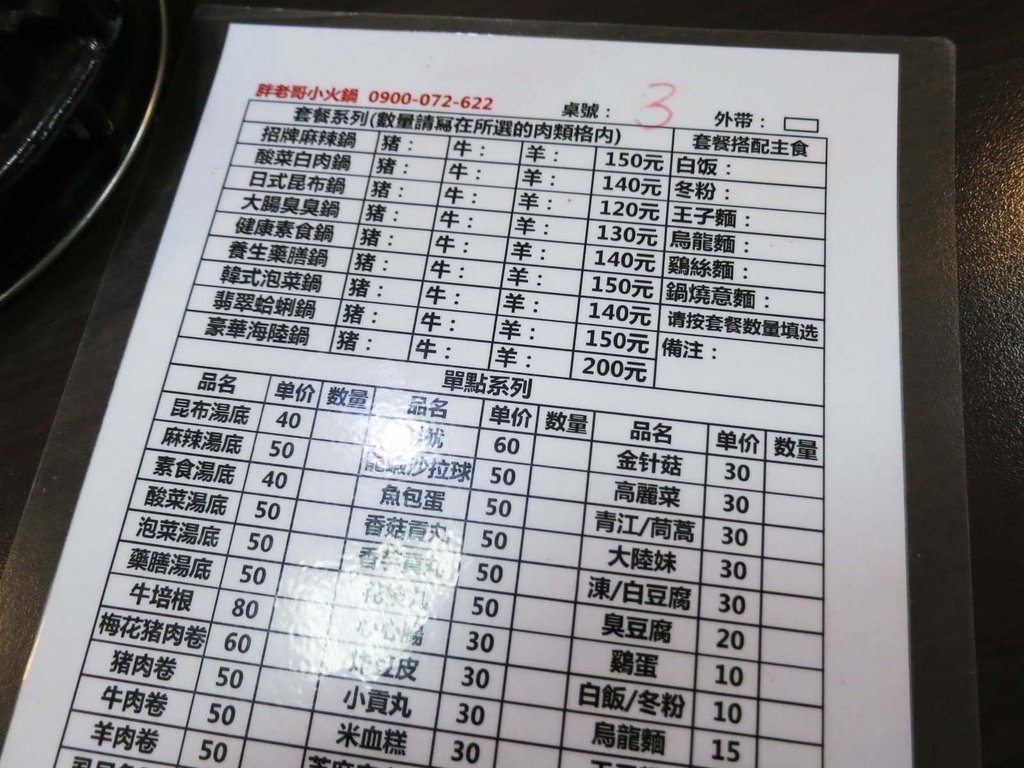 胖老哥小火鍋 0900-072-622 桌號： 3 外带：
套餐系列(數量請寫在所選的肉類格内) 套餐搭配主食
招牌麻辣鍋 猪： 牛： 羊： 150元 白饭：
酸菜白肉鍋 猪： 牛： 羊： 140元 冬粉：
日式昆布鍋 猪： 牛： 羊： 120元 王子麵：
大腸臭臭鍋 猪： 牛： 羊： 130元 烏龍麵：
健康素食鍋 猪： 牛： 羊： 140元 鷄絲麵：
養生藥膳鍋 猪： 牛： 羊： 150元 鍋燒意麵：
韓式泡菜鍋 猪： 牛： 羊： 140元 请按套餐数量填选
翡翠蛤蜊鍋 猪： 牛： 羊： 150元 備注：
豪華海陸鍋 猪： 牛： 羊： 200元
單點系列
品名 单价 数量 品名 单价 数量 品名 单价 数量
昆布湯底 40 60 金针菇 30
麻辣湯底 50 龍蝦沙拉球 50 高麗菜 30
素食湯底 40 魚包蛋 50 青江/茼蒿 30
酸菜湯底 50 香菇貢丸 50 大陸妹 30
泡菜湯底 50 50 涷/白豆腐 30
藥膳湯底 50 50 臭豆腐 20
牛培根 80 30 鷄蛋 10
梅花猪肉卷 60 炸豆皮 30 白飯/冬粉 10
猪肉卷 50 小貢丸 30 烏龍麵 15
牛肉卷 50 米血糕 30
羊肉卷 50